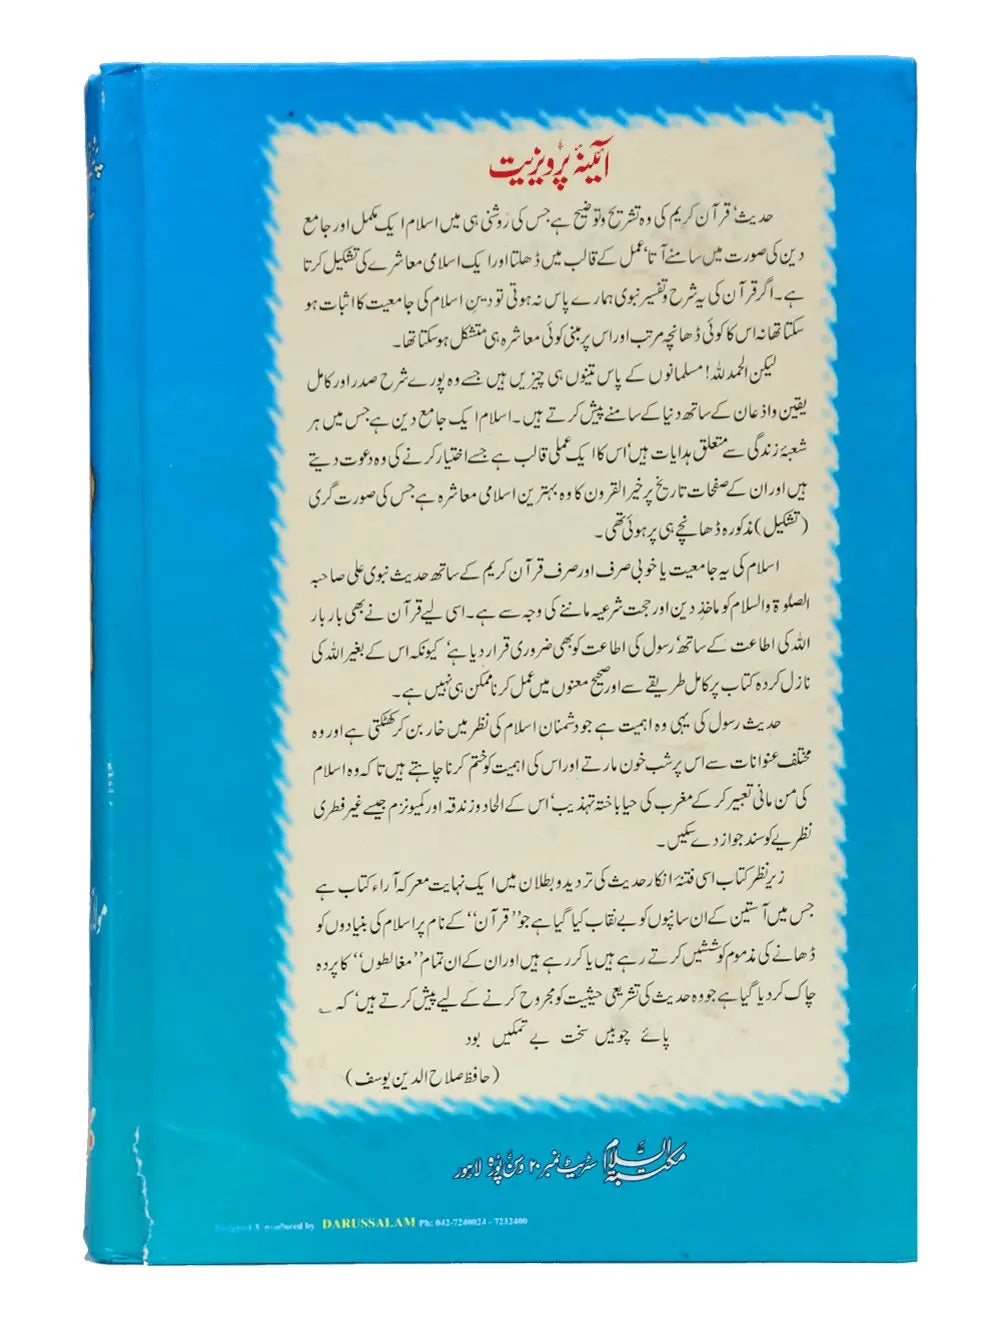 آئینۂ پرویزیت
حدیث، قرآن کریم کی وہ تشریح و توضیح ہے جس کی روشنی ہی میں اسلام ایک مکمل اور جامع
دین کی صورت میں سامنے آتا، عمل کے قالب میں ڈھلتا اور ایک اسلامی معاشرے کی تشکیل کرتا
ہے۔ اگر قرآن کی یہ شرح و تفسیر نبوی ہمارے پاس نہ ہوتی تو دینِ اسلام کی جامعیت کا اثبات ہو
سکتا تھا نہ اس کا کوئی ڈھانچہ مرتب اور اس پر مبنی کوئی معاشرہ ہی متشکل ہو سکتا تھا۔
لیکن الحمد للہ! مسلمانوں کے پاس تینوں ہی چیزیں ہیں جسے وہ پورے شرح صدر اور کامل
یقین و اذعان کے ساتھ دنیا کے سامنے پیش کرتے ہیں۔ اسلام ایک جامع دین ہے جس میں ہر
شعبۂ زندگی سے متعلق ہدایات ہیں، اس کا ایک عملی قالب ہے جسے اختیار کرنے کی وہ دعوت دیتے
ہیں اور ان کے صفحات تاریخ پر خیر القرون کا وہ بہترین اسلامی معاشرہ ہے جس کی صورت گری
(تشکیل) مذکورہ ڈھانچے ہی پر ہوئی تھی۔
اسلام کی یہ جامعیت یا خوبی صرف اور صرف قرآن کریم کے ساتھ حدیث نبوی علی صاحبہ
الصلوٰۃ والسلام کو ماخذِ دین اور حجت شرعیہ ماننے کی وجہ سے ہے۔ اسی لیے قرآن نے بھی بار بار
اللہ کی اطاعت کے ساتھ، رسول کی اطاعت کو بھی ضروری قرار دیا ہے، کیونکہ اس کے بغیر اللہ کی
نازل کردہ کتاب پر کامل طریقے سے اور صحیح معنوں میں عمل کرنا ممکن ہی نہیں ہے۔
حدیث رسول کی یہی وہ اہمیت ہے جو دشمنان اسلام کی نظر میں خار بن کر کھٹکتی ہے اور وہ
مختلف عنوانات سے اس پر شب خون مارتے اور اس کی اہمیت کو ختم کرنا چاہتے ہیں تاکہ وہ اسلام
کی من مانی تعبیر کر کے مغرب کی حیا باختہ تہذیب، اس کے الحاد و زندقہ اور کمیونزم جیسے غیر فطری
نظریے کو سند جواز دے سکیں۔
زیر نظر کتاب اسی فتنۂ انکار حدیث کی تردید و بطلان میں ایک نہایت معرکہ آراء کتاب ہے
جس میں آستین کے ان سانپوں کو بے نقاب کیا گیا ہے جو "قرآن" کے نام پر اسلام کی بنیادوں کو
ڈھانے کی مذموم کوششیں کرتے رہے ہیں یا کر رہے ہیں اور ان کے ان تمام "مغالطوں" کا پردہ
چاک کر دیا گیا ہے جو وہ حدیث کی تشریعی حیثیت کو مجروح کرنے کے لیے پیش کرتے ہیں، کہ ؎
پائے چوبیں سخت بے تمکیں بود
(حافظ صلاح الدین یوسف)
مکتبۃ السلام سٹریٹ نمبر ۲۰ وسن پورہ لاہور
Designed & produced by DARUSSALAM Ph: 042-7240024 - 7232400